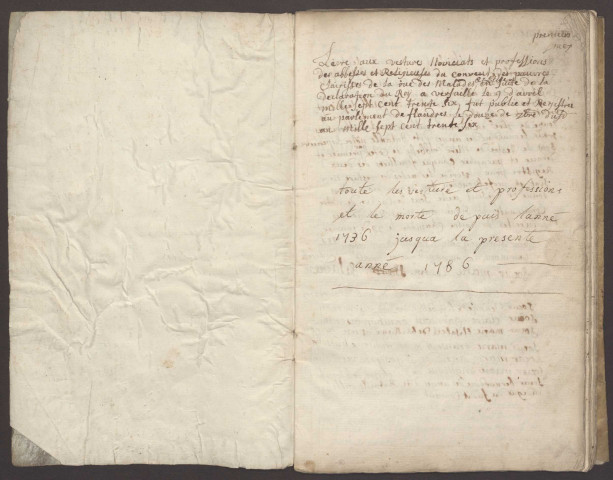 premier
Livre aux vesture Noviciats et professions
des abbesses et Religieuses du convent des pauvres
Clarisses de la rue des Malades en suite de la
declaration du Roy a versaille le 9 d'avril
mille sept cent trente six, fut publié et Registré
au parlement de flandres le douze de
an Mille sept cent trente six
toute les vesture et professions
et le morte de puis lanné
1736 jusqua la presente
anné 1786